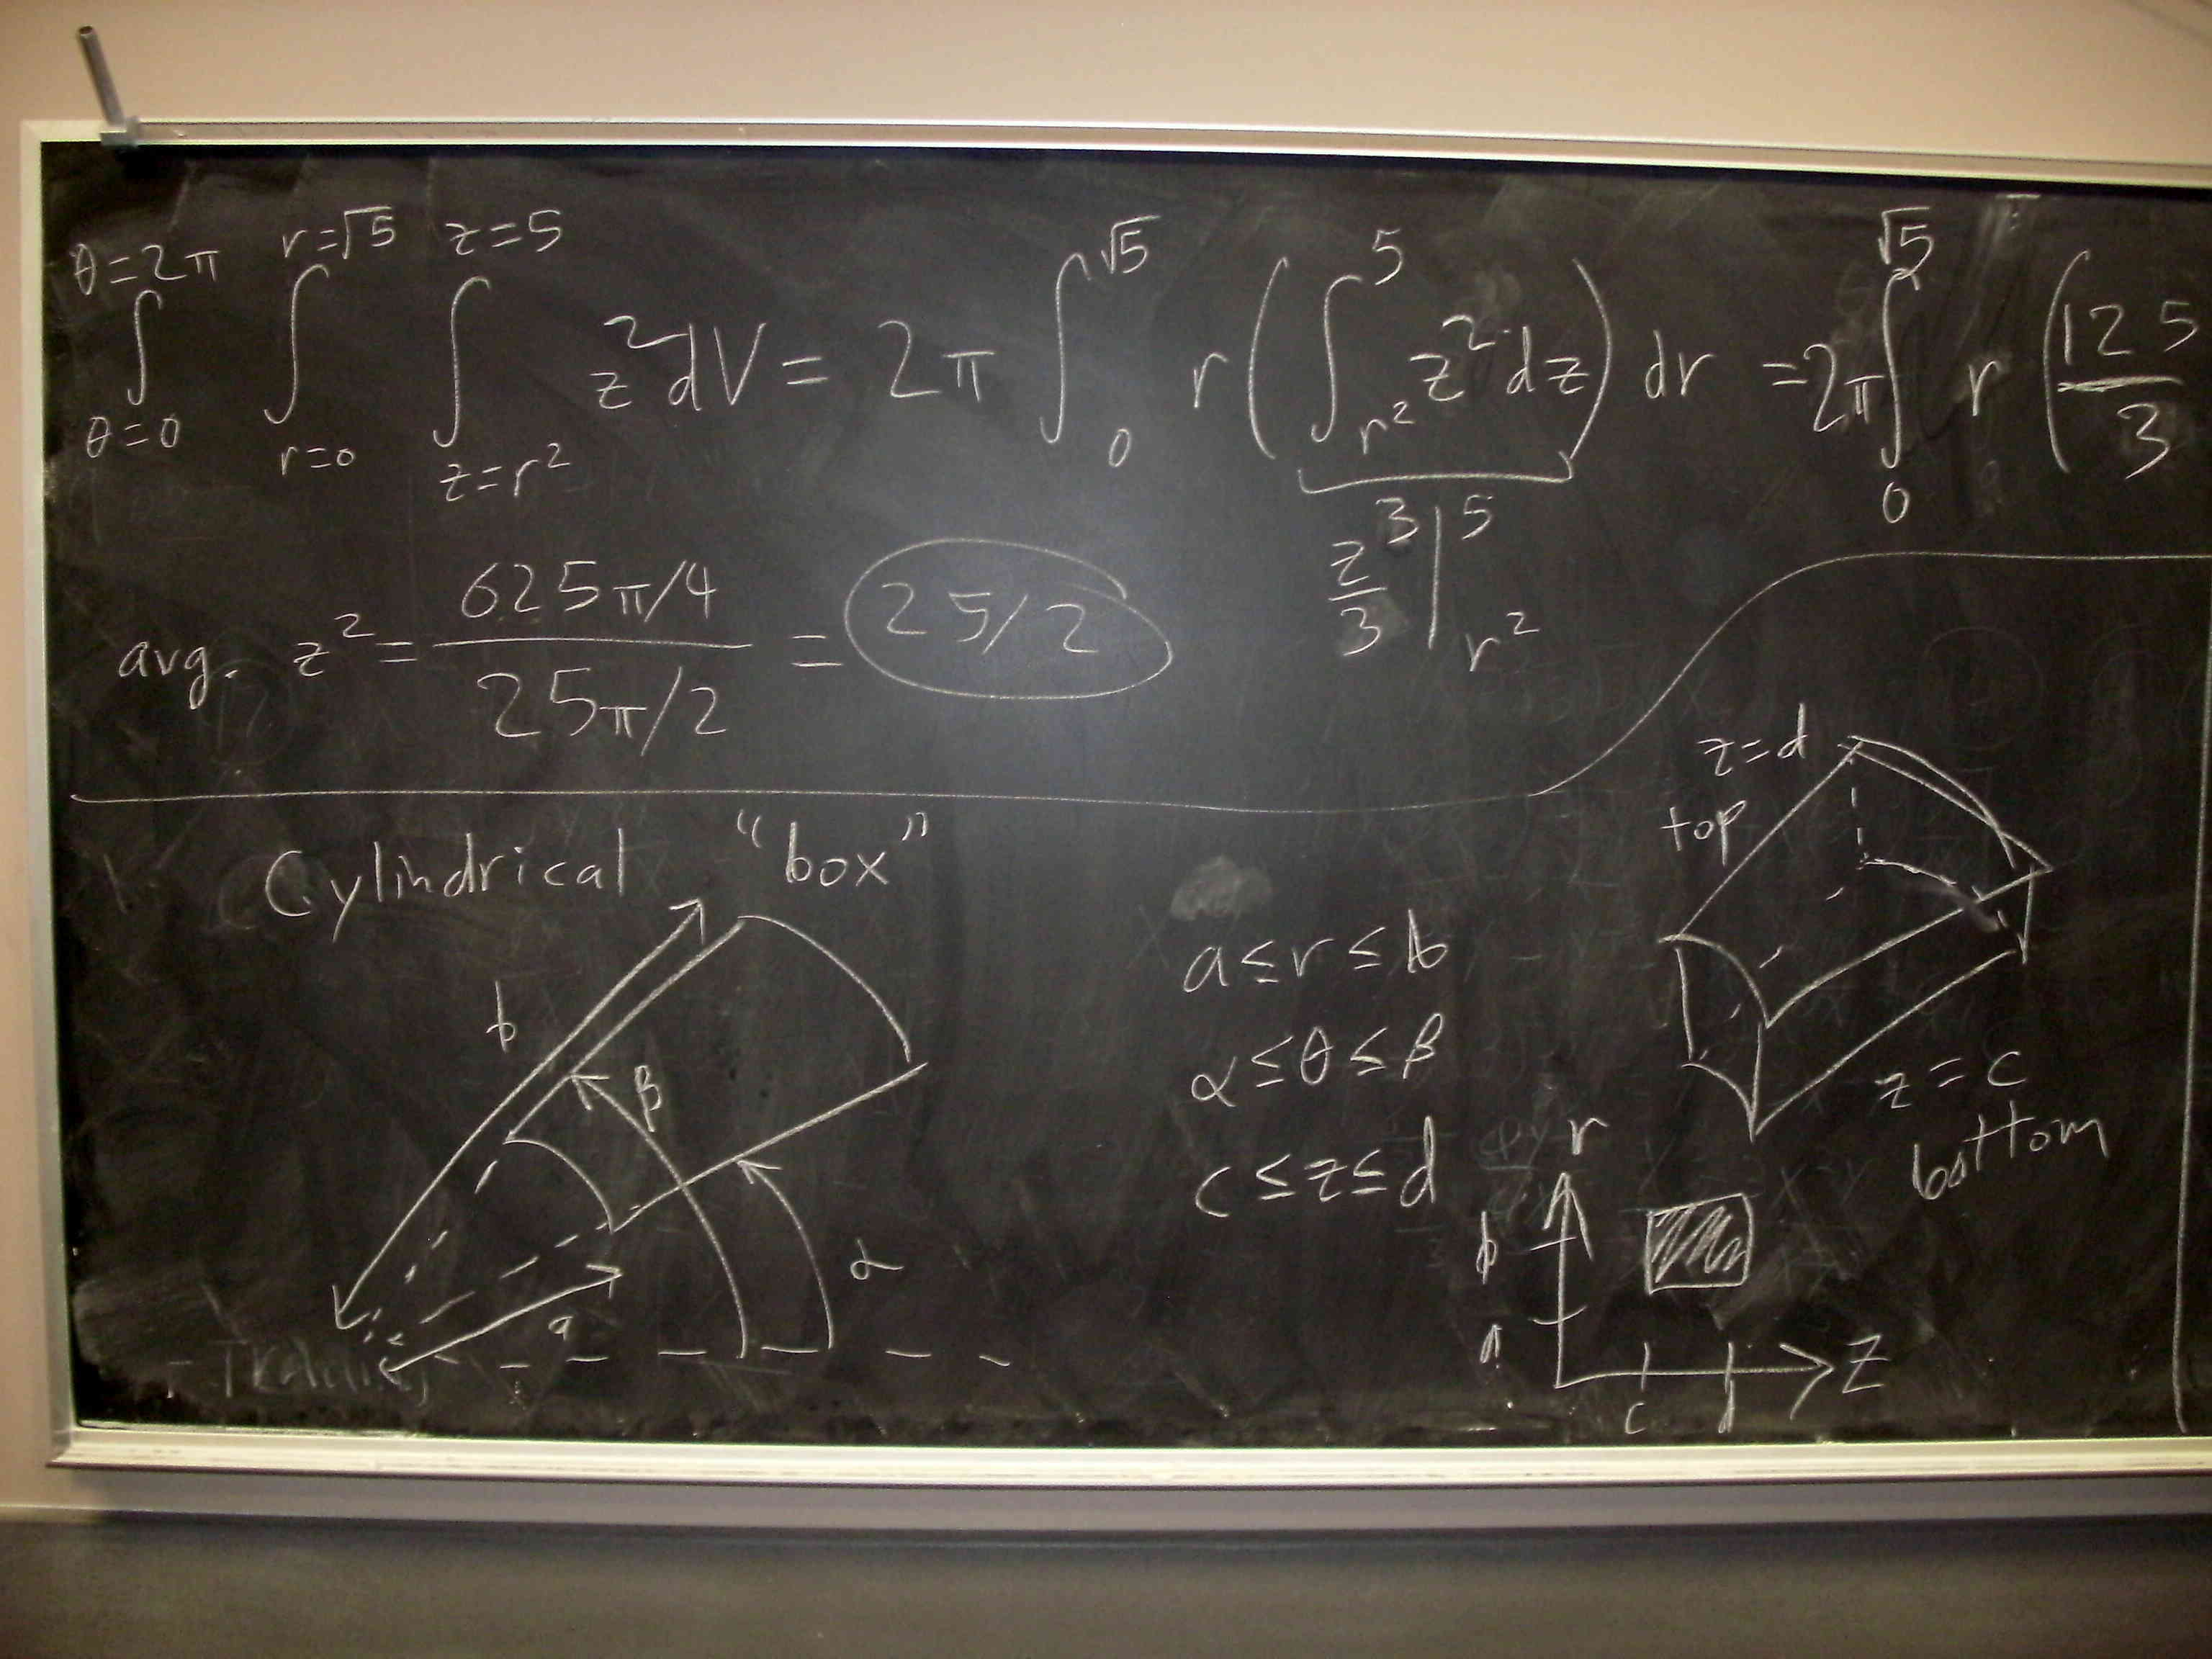 ∫_{θ=0}^{θ=2π} ∫_{r=0}^{r=√5} ∫_{z=r²}^{z=5} z² dV = 2π ∫_0^{√5} r ( ∫_{r²}^5 z² dz ) dr = 2π ∫_0^{√5} r ( 125/3
z³/3 |_{r²}^5
avg. z² = (625π/4)/(25π/2) = 25/2
Cylindrical "box"
b
β
α
a
a ≤ r ≤ b
α ≤ θ ≤ β
c ≤ z ≤ d
z=d
top
z=c
bottom
r
b
a
c d
z